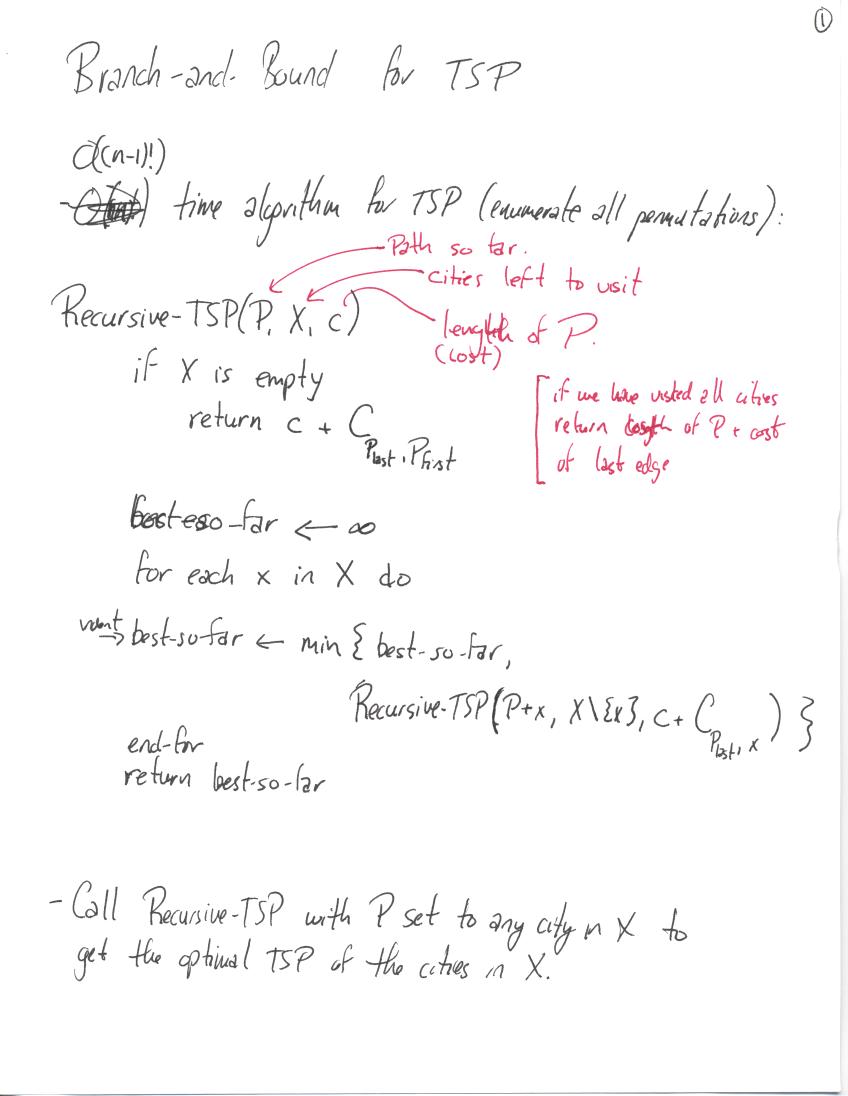 ①
Branch-and-Bound for TSP
O((n-1)!)
time algorithm for TSP (enumerate all permutations):
Path so far.
cities left to visit
Recursive-TSP(P, X, c)
length of P.
(cost)
if X is empty
return c + C_{P_last, P_first}
[if we have visted all cities
return length of P + cost
of last edge
best-so-far ← ∞
for each x in X do
want → best-so-far ← min { best-so-far,
Recursive-TSP(P+x, X\{x}, c + C_{P_last, x}) }
end-for
return best-so-far
- Call Recursive-TSP with P set to any city in X to
get the optimal TSP of the cities in X.